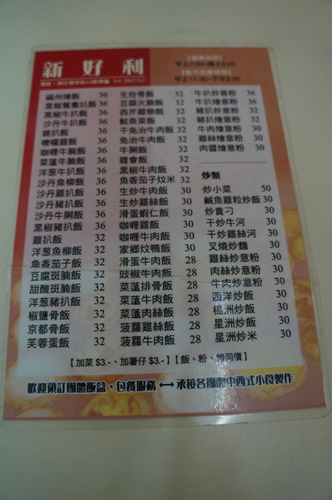 新好利
福州燴飯 36
黑椒鴛鴦扒飯 36
黑椒牛扒飯 36
沙丹牛扒飯 36
雞扒飯 36
喱喱雞飯 36
咖喱牛腩飯 36
菜薳牛腩飯 36
洋葱牛扒飯 36
沙丹魚柳飯 36
沙丹雞扒飯 36
沙丹豬扒飯 36
沙丹牛腩飯 36
黑椒豬扒飯 36
雞扒飯 32
洋葱魚柳飯 32
魚香茄子飯 32
豆腐斑腩飯 32
甜酸斑腩飯 32
洋葱豬扒飯 32
椒鹽骨飯 32
京都骨飯 32
芙蓉蛋飯 32
生炒骨飯 32
豆腐火腩飯 32
西芹雞柳飯 32
魷魚菜飯 32
干免治牛肉飯 32
免治牛肉飯 32
牛腩飯 32
雜會飯 32
黑椒牛肉飯 30
魚香茄子炆米 32
生炒牛肉飯 30
生炒雞絲飯 30
滑蛋蝦仁飯 30
咖喱雞飯 30
咖喱牛肉飯 30
家鄉炆鴨飯 30
滑蛋牛肉飯 30
豉椒牛肉飯 30
菜薳排骨飯 30
菜薳牛肉飯 28
菜薳肉絲飯 28
菠蘿雞絲飯 28
菠蘿牛肉飯 28
牛扒炒意粉 36
牛扒燴意粉 36
豬扒炒意粉 36
豬扒燴意粉 36
牛肉燴意粉 30
雞絲燴意粉 30
肉醬燴意粉 30
炒類
炒小菜 50
鹹魚雞粒炒飯 30
炒貴刁 30
干炒牛河 30
干炒雞絲河 30
叉燒炒麵 30
雞絲炒意粉 30
肉絲炒意粉 30
牛肉炒意粉 30
西洋炒飯 30
楊洲炒飯 30
星洲炒飯 30
星洲炒米 30
【加菜 $3.-、加薯仔 $3.-】【飯、粉、麵同價】
歡迎預訂團體飯盒、包餐服務 ↔ 承接各團體中西式小食製作